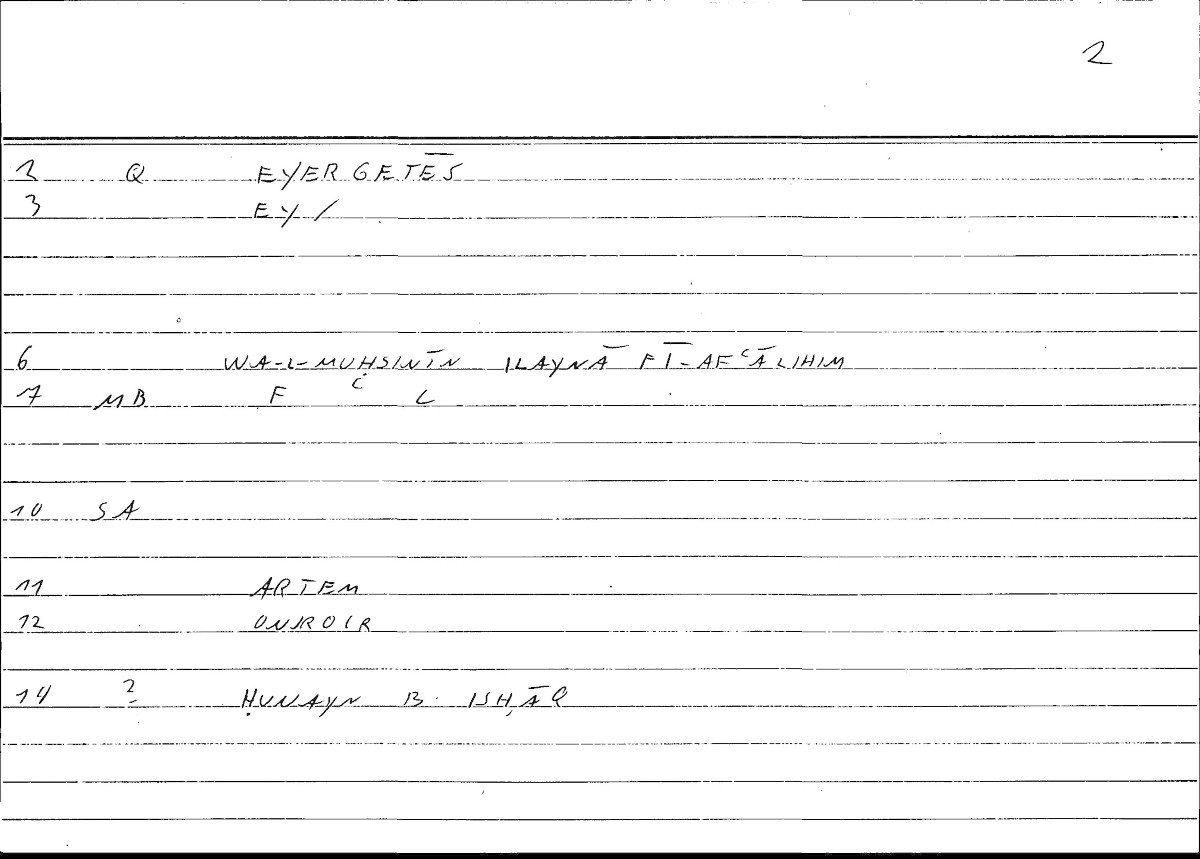 2
2 Q EYERGETĒS
3 EY /
6 WA-L-MUḤSINĪN ILAYNĀ FĪ-AFʿĀLIHIM
7 MB F ʿ L
10 SA
11 ARTEM
12 ONIROCR
14 ? ḤUNAYN B. ISḤĀQ